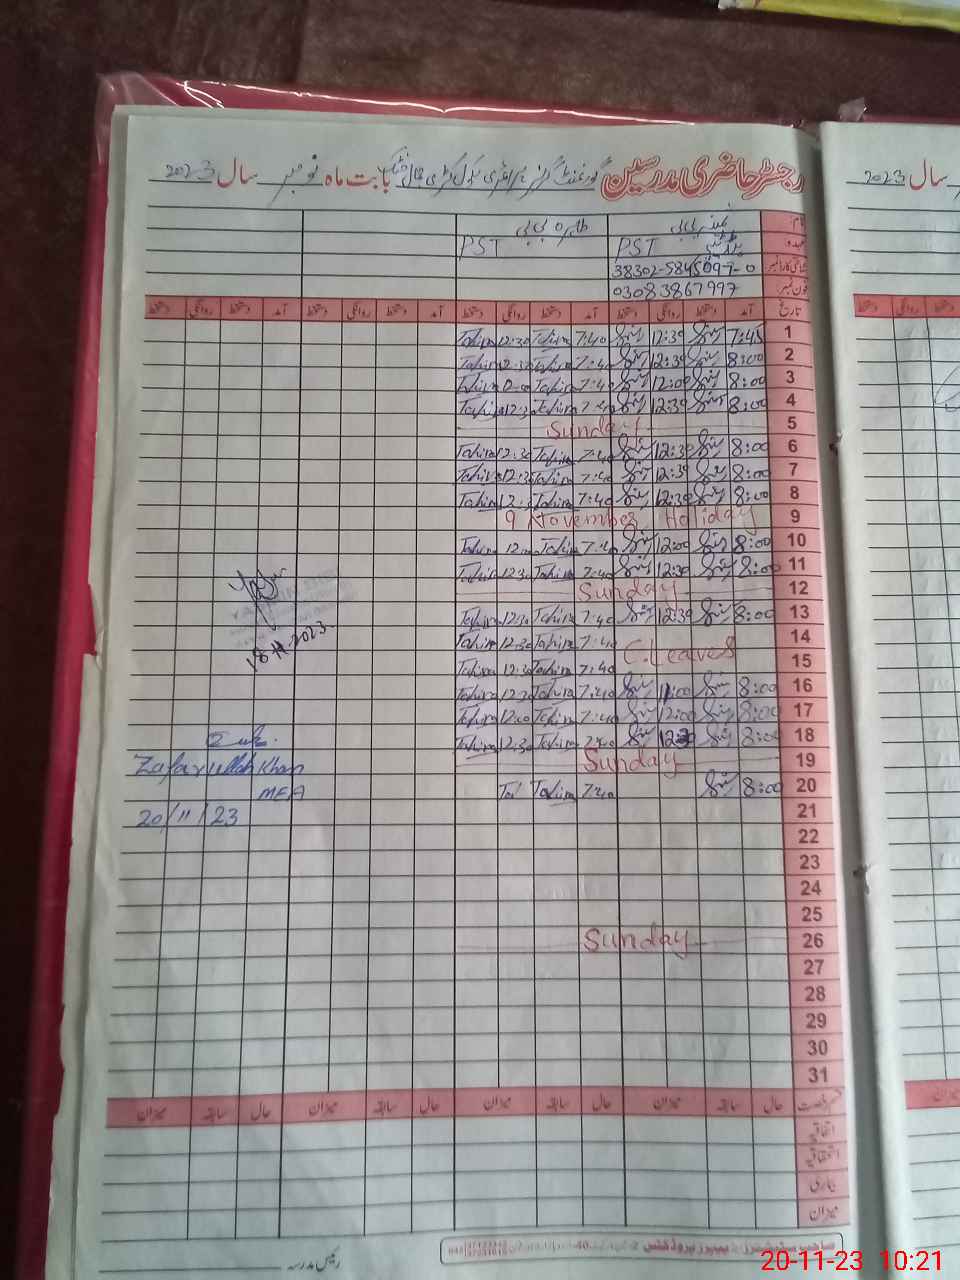 رجسٹر حاضری مدرسین گورنمنٹ گرلز پرائمری سکول بابت ماہ نومبر سال 2023
سال 2023
نام:
عہدہ
PST PST
شناختی کارڈ نمبر 38302-5845097-0
فون نمبر: 03083867997
تاریخ آمد دستخط روانگی دستخط آمد دستخط روانگی دستخط آمد دستخط روانگی دستخط آمد دستخط روانگی دستخط
1 7:45 12:30 7:40 Tahira 12:30 Tahira
2 8:00 12:30 7:40 Tahira 12:30 Tahira
3 8:00 12:00 7:40 Tahira 12:00 Tahira
4 8:00 12:30 7:40 Tahira 12:30 Tahira
5 Sunday
6 8:00 12:30 7:40 Tahira 12:30 Tahira
7 8:00 12:30 7:40 Tahira 12:30 Tahira
8 8:00 12:30 7:40 Tahira 12:30 Tahira
9 9 November Holiday
10 8:00 12:00 7:40 Tahira 12:00 Tahira
11 8:00 12:30 7:40 Tahira 12:30 Tahira
12 Sunday
13 8:00 12:30 7:40 Tahira 12:30 Tahira
14 7:40 Tahira 12:30 Tahira
C.Leaves
15 7:40 Tahira 12:30 Tahira
16 8:00 11:00 7:40 Tahira 12:30 Tahira
17 8:00 12:00 7:40 Tahira 12:00 Tahira
18 8:00 12:30 7:40 Tahira 12:30 Tahira
19 Sunday
20 8:00 7:40 Tahira
21
22
23
24
25
26 Sunday
27
28
29
30
31
18-11-2023
Zafar ullah Khan
MEA
20/11/23
حال سابقہ میزان حال سابقہ میزان حال سابقہ میزان حال سابقہ میزان
اتفاقیہ
استحقاقیہ
بیماری
میزان
رئیس مدرسہ
20-11-23 10:21